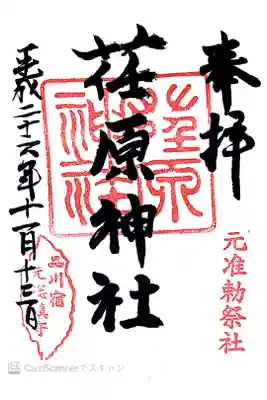 奉拝
元准勅祭社
荏原神社
平成二十六年十一月十三日
品川宿
CamScannerでスキャン